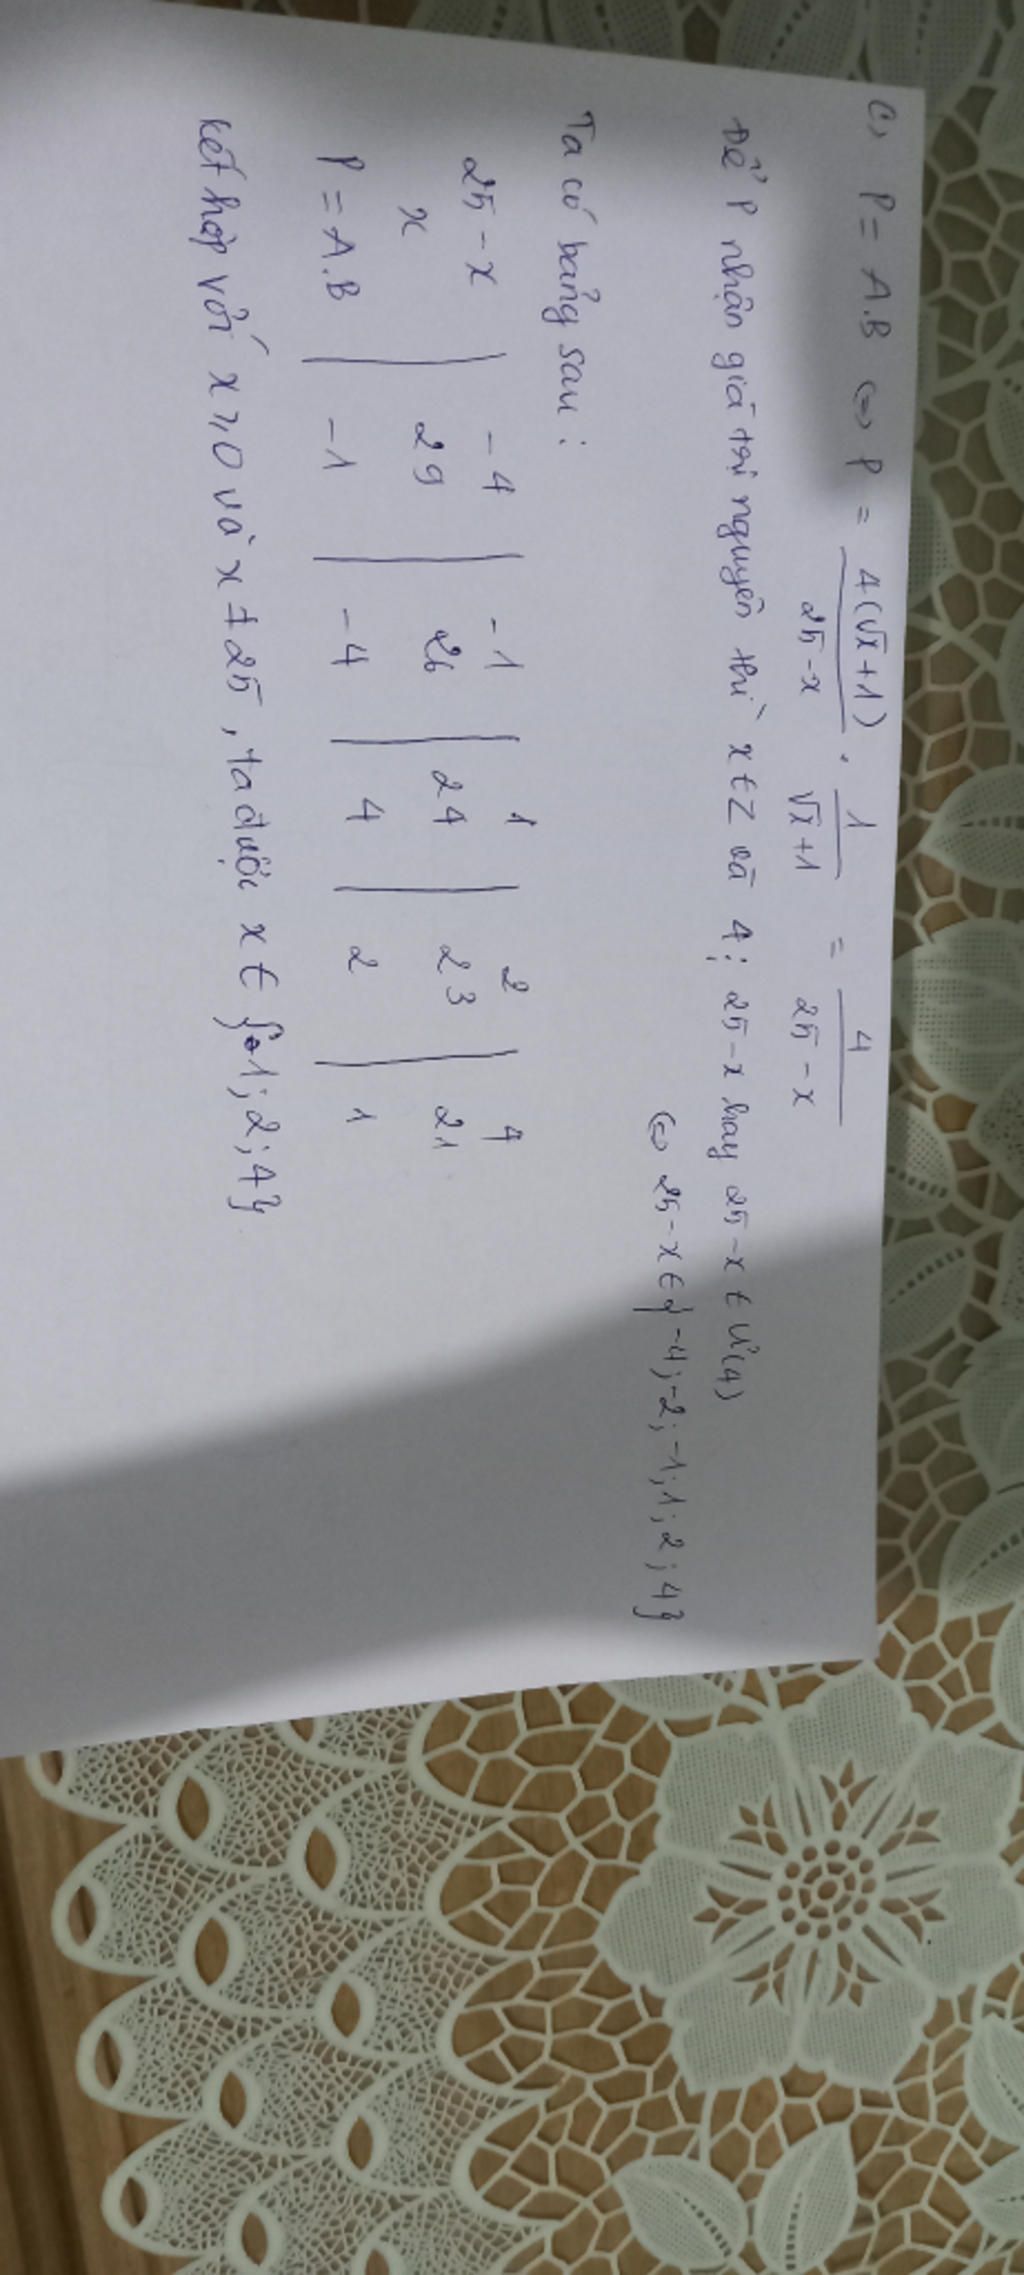 c, P = A.B ⇔ P = 4(√x+1)/25-x . 1/√x+1 = 4/25-x
Để P nhận giá trị nguyên thì x∈Z và 4⋮25-x hay 25-x ∈ Ư(4)
⇔ 25-x ∈ {-4;-2;-1;1;2;4}
Ta có bảng sau:
25-x | -4 | -1 | 1 | 2 | 4
x | 29 | 26 | 24 | 23 | 21
P = A.B | -1 | -4 | 4 | 2 | 1
Kết hợp với x ≥ 0 và x ≠ 25, ta được x ∈ {1;2;4}